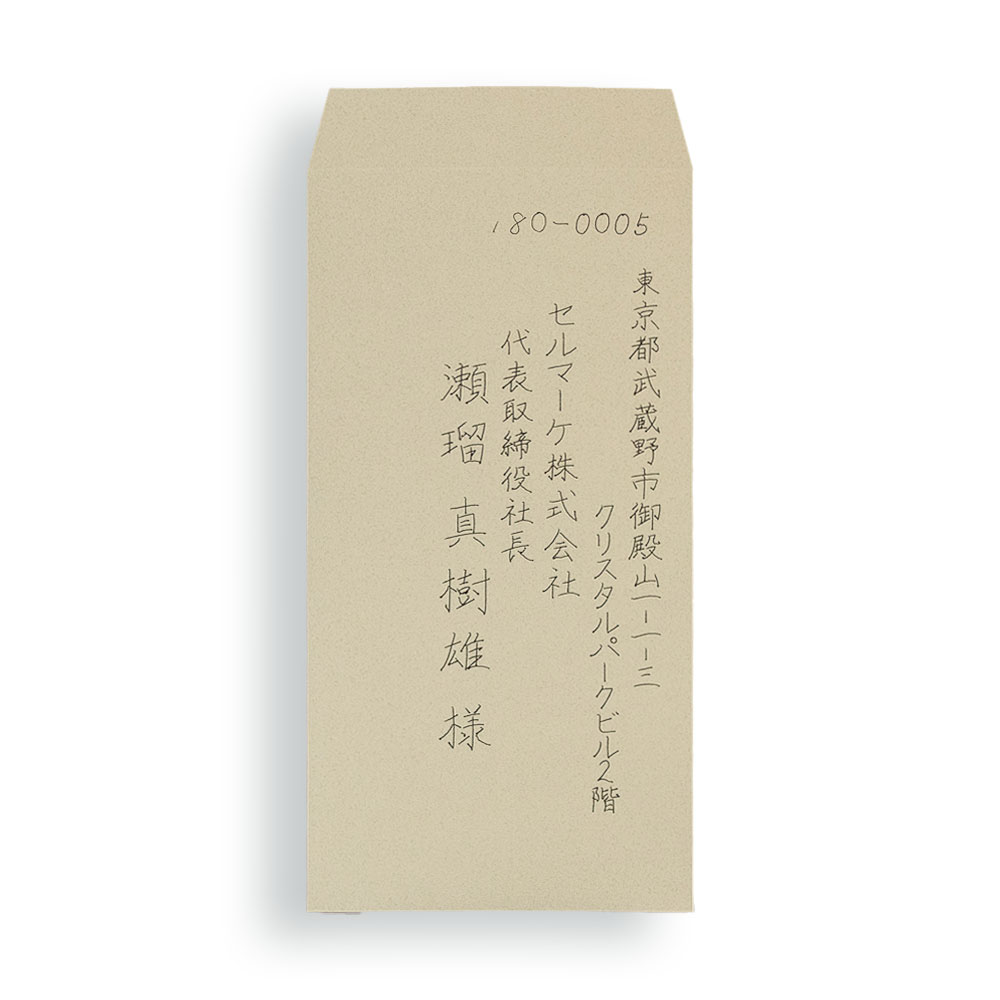 180-0005
東京都武蔵野市御殿山一-一-三
クリスタルパークビル2階
セルマーケ株式会社
代表取締役社長
瀬瑠真樹雄様